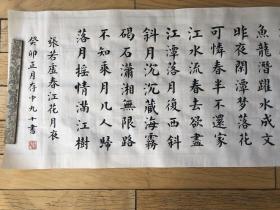 魚龍潛躍水成文
昨夜閑潭夢落花
可憐春半不還家
江水流春去欲盡
江潭落月復西斜
斜月沉沉藏海霧
碣石瀟湘無限路
不知乘月几人歸
落月摇情滿江樹
張若虛春江花月夜
癸卯正月存中九十書